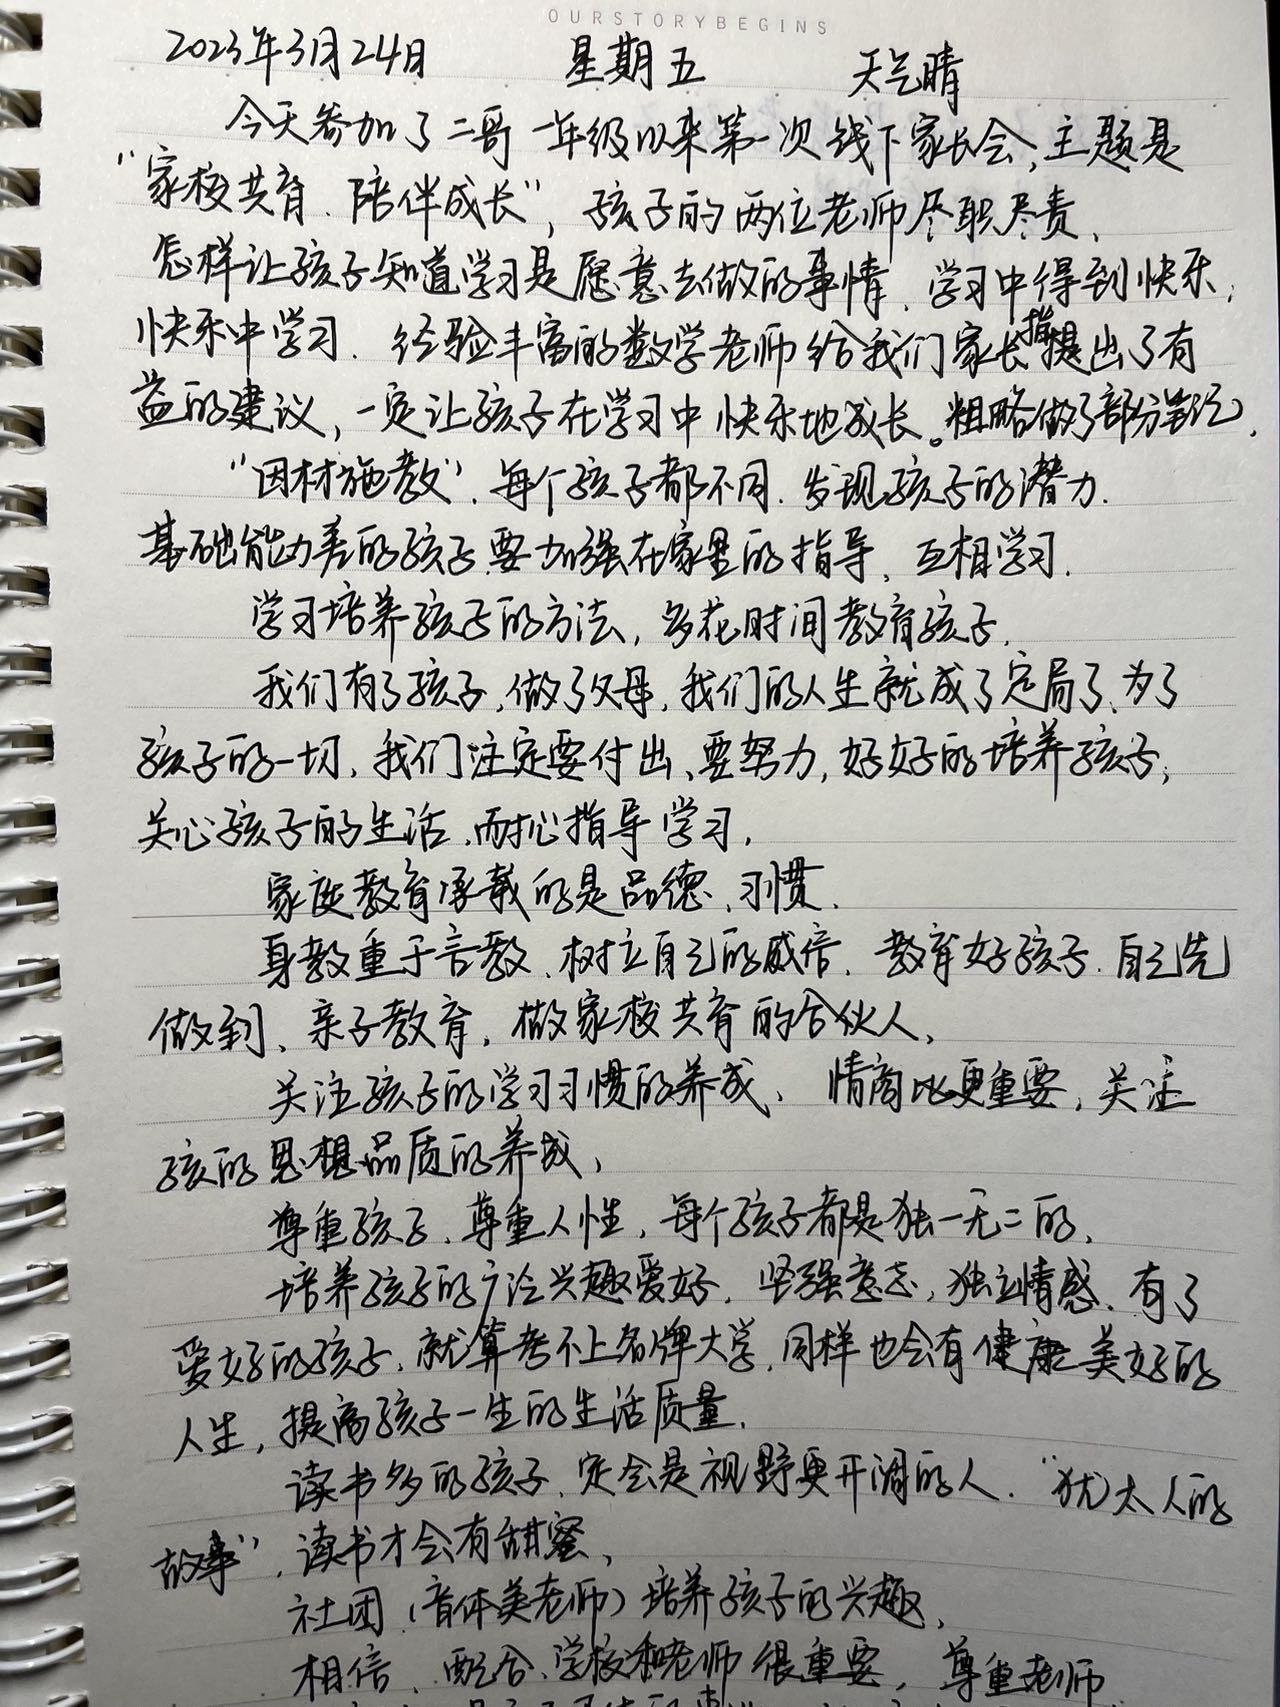 OURSTORYBEGINS
2023年3月24日 星期五 天气晴
今天参加了二哥一年级以来第一次线下家长会,主题是
“家校共育、陪伴成长”,孩子的两位老师尽职尽责、
怎样让孩子知道学习是愿意去做的事情、学习中得到快乐,
快乐中学习、经验丰富的数学老师给我们家长指提出了有
益的建议,一定让孩子在学习中快乐地成长。粗略做了部分笔记、
“因材施教”、每个孩子都不同、发现孩子的潜力.
基础能力差的孩子要加强在家里的指导、互相学习.
学习培养孩子的方法,多花时间教育孩子.
我们有了孩子,做了父母,我们的人生就成了定局了、为了
孩子的一切,我们注定要付出、要努力,好好的培养孩子,
关心孩子的生活、耐心指导学习,
家庭教育承载的是品德、习惯.
身教重于言教、树立自己的威信、教育好孩子、自己先
做到、亲子教育,做家校共育的合伙人,
关注孩子的学习习惯的养成、情商比更重要,关注
孩的思想品质的养成,
尊重孩子、尊重人性,每个孩子都是独一无二的,
培养孩子的广泛兴趣爱好、坚强意志,独立情感、有了
爱好的孩子,就算考不上名牌大学,同样也会有健康美好的
人生,提高孩子一生的生活质量,
读书多的孩子、定会是视野更开阔的人.“犹太人的
故事”,读书才会有甜蜜、
社团(音体美老师)培养孩子的兴趣,
相信、配合、学校和老师很重要,尊重老师